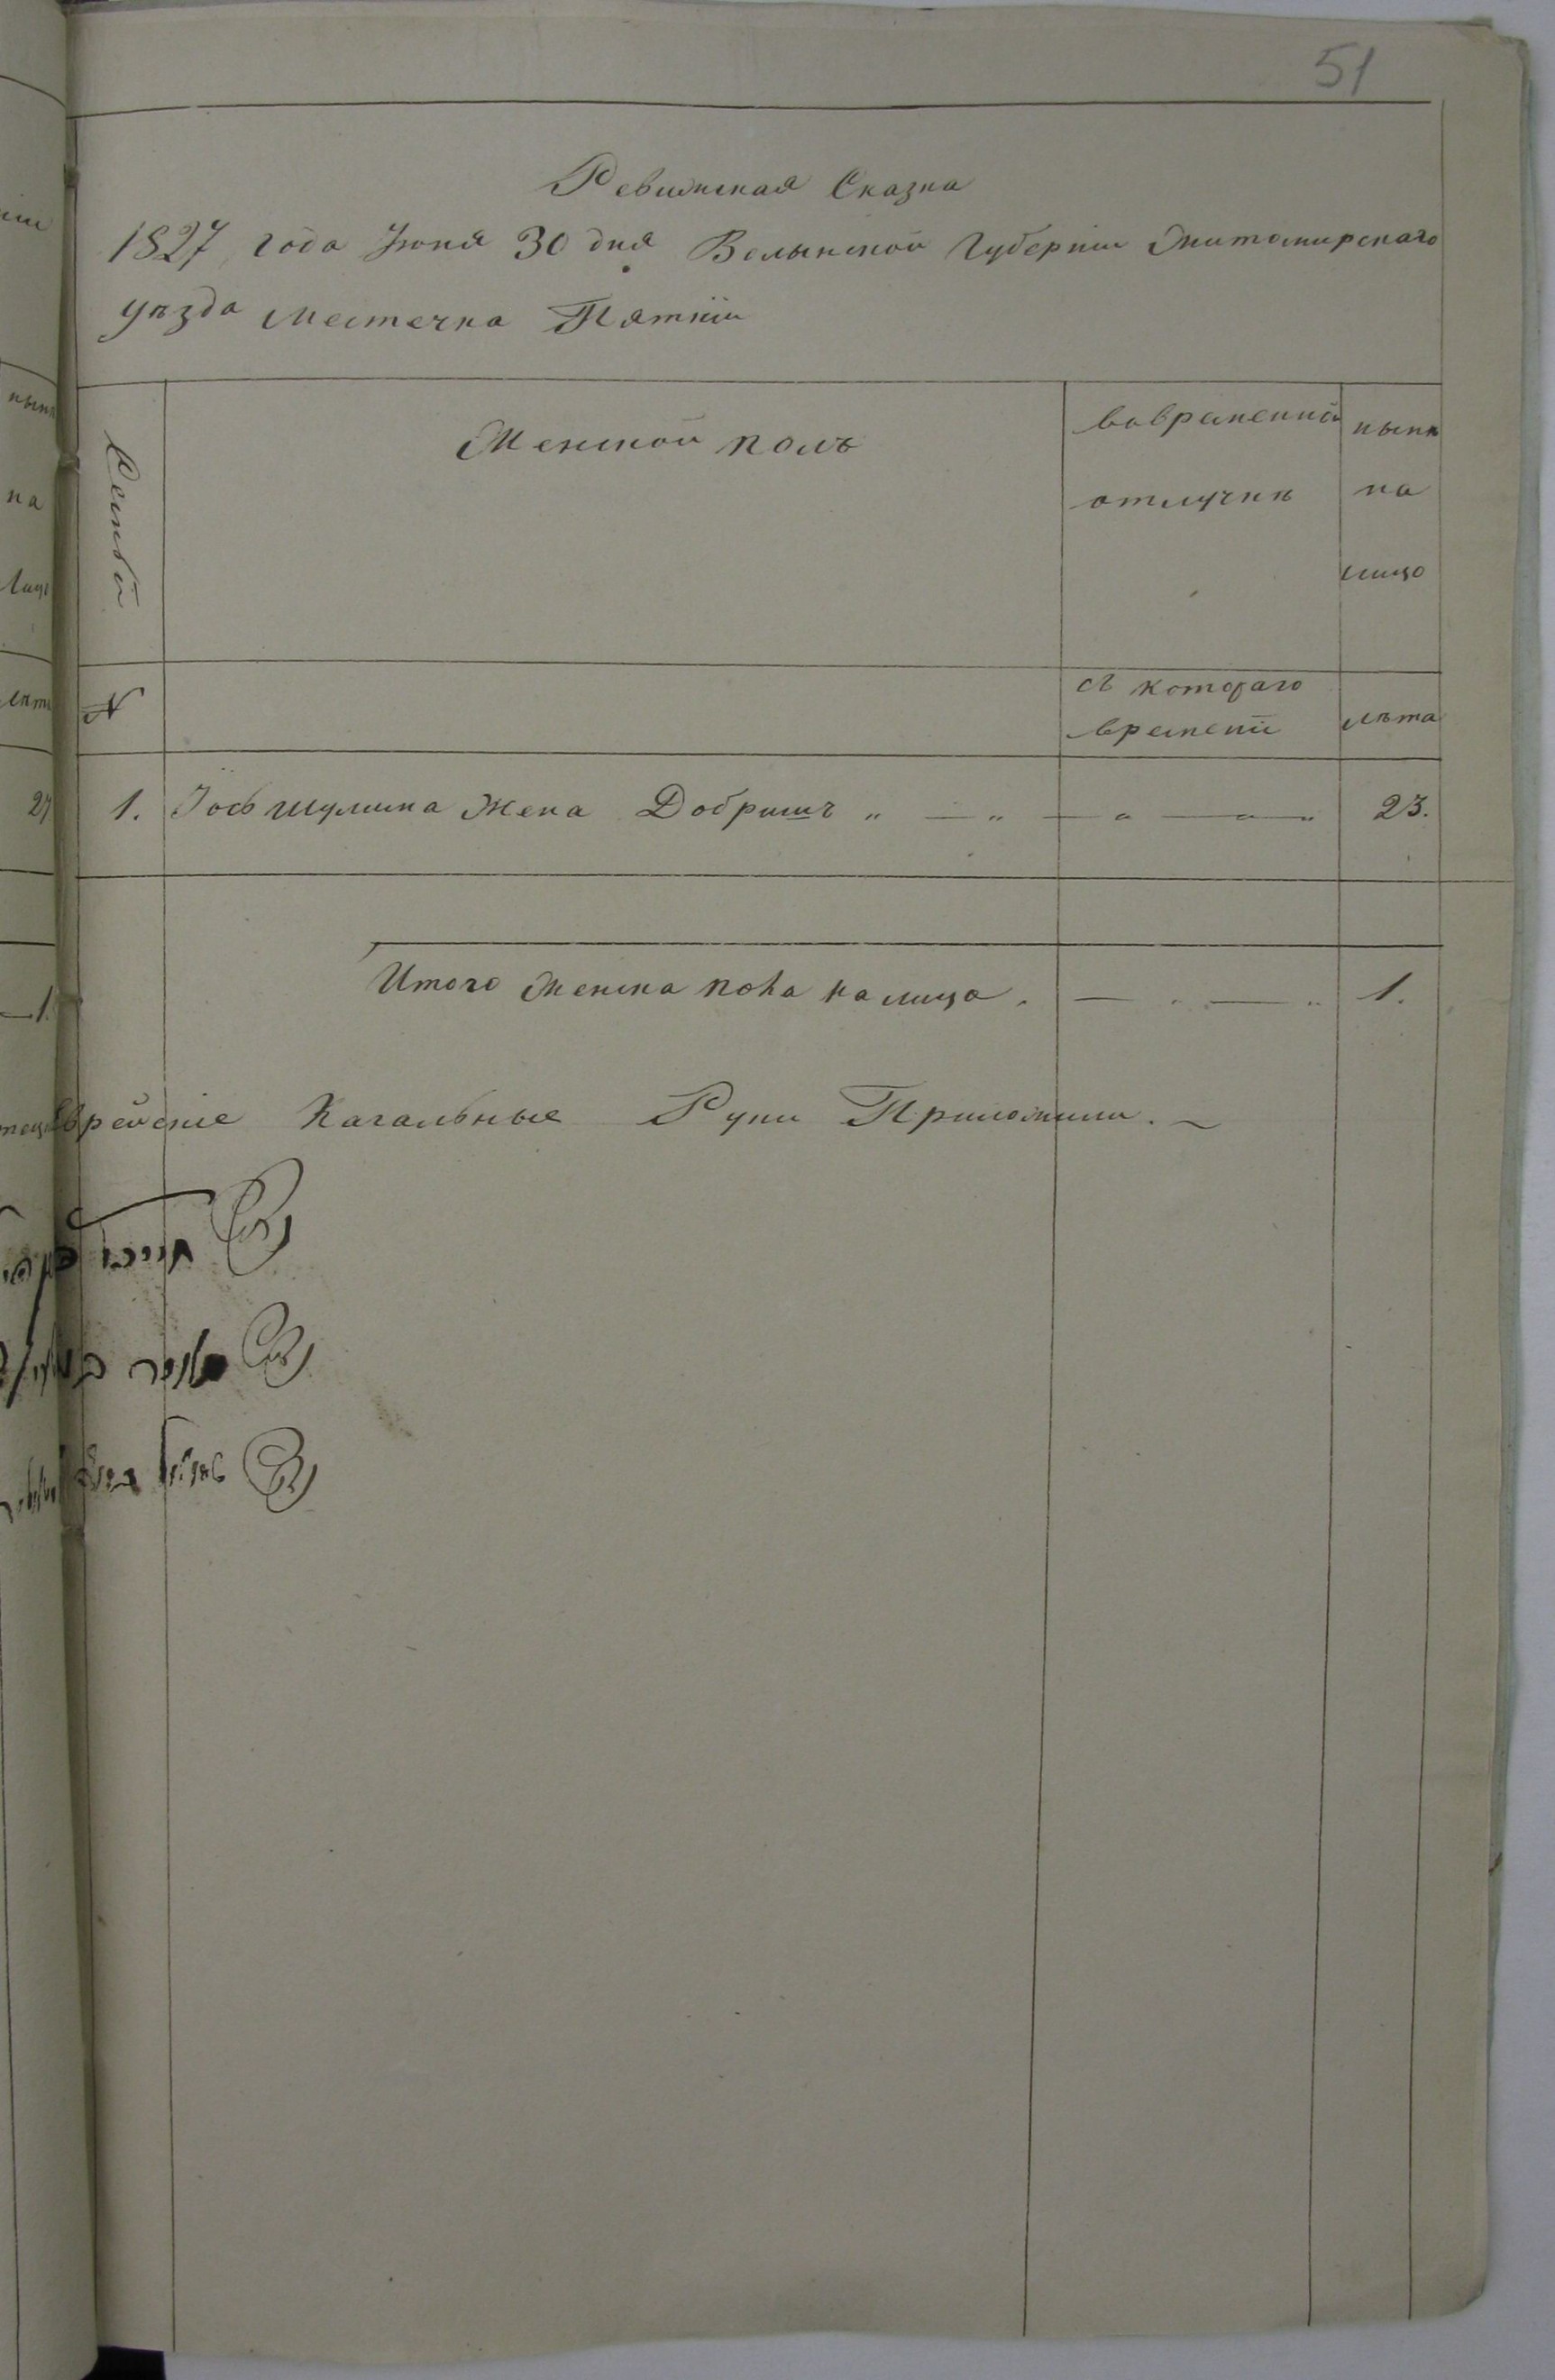 51
Ревизская Сказка
1827 года Июня 30 дня Волынской Губернии Житомирскаго
уѣзда местечка Пятки
Семьи
Женской полъ
вовременной
отлучкѣ
нынѣ
на
лицо
№
съ котораго
времени
лѣта
1. Іось Шулима Жена Добришъ 23.
Итого женска пола на лицо. 1.
Еврейскіе Кагальные Руки Приложили.